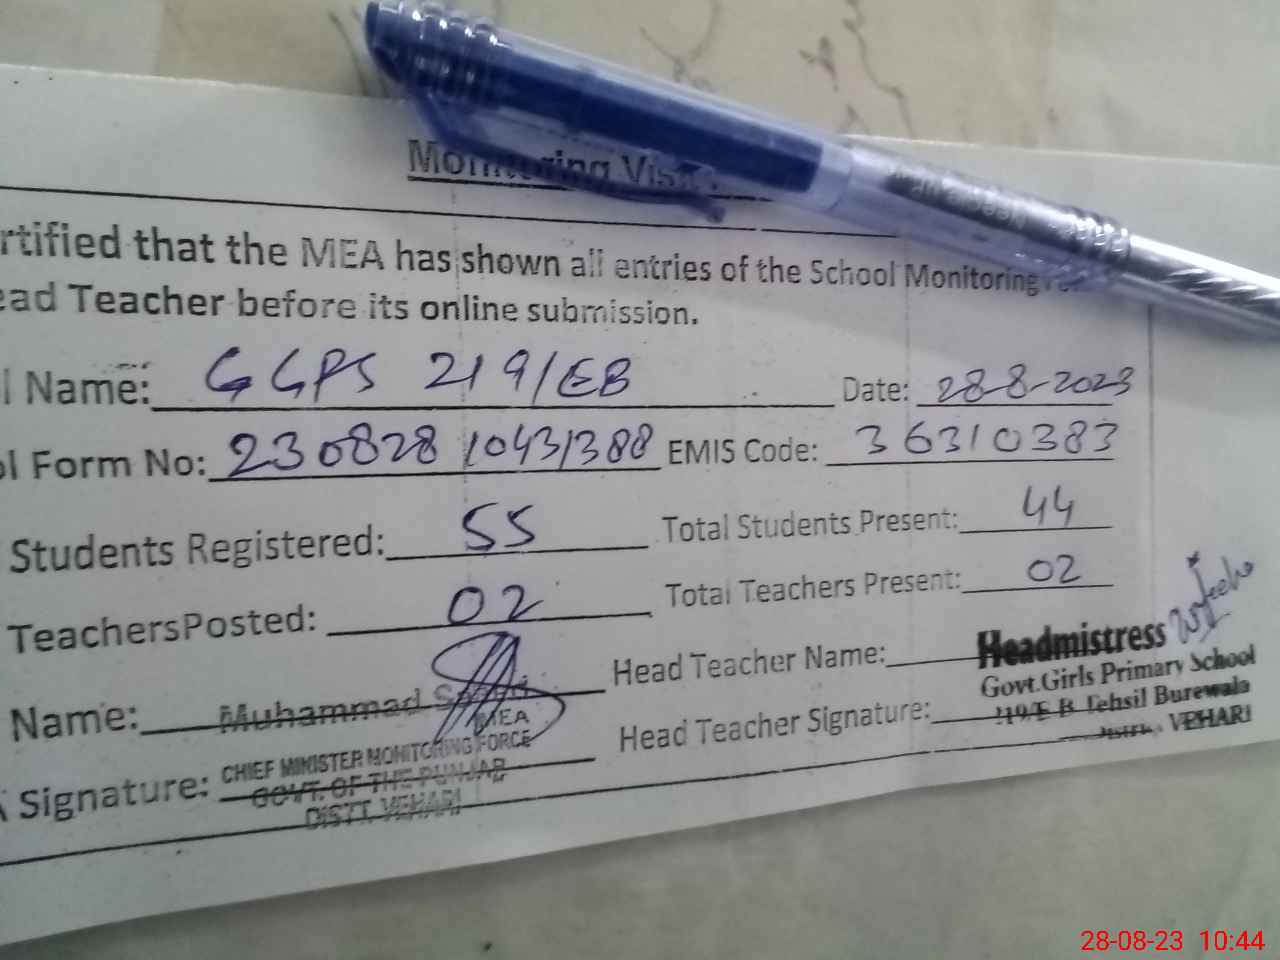 Monitoring Visit
rtified that the MEA has shown all entries of the School Monitoring
ead Teacher before its online submission.
l Name: GGPS 219/EB Date: 28-8-2023
ol Form No: 230828 10431388 EMIS Code: 36310383
Students Registered: 55 Total Students Present: 44
TeachersPosted: 02 Total Teachers Present: 02
Name: Muhammad Head Teacher Name: Headmistress
MEA Govt.Girls Primary School
Signature: CHIEF MINISTER MONITORING FORCE Head Teacher Signature: 219/E B Tehsil Burewala
GOVT. OF THE PUNJAB VEHARI
DISTT. VEHARI
28-08-23 10:44